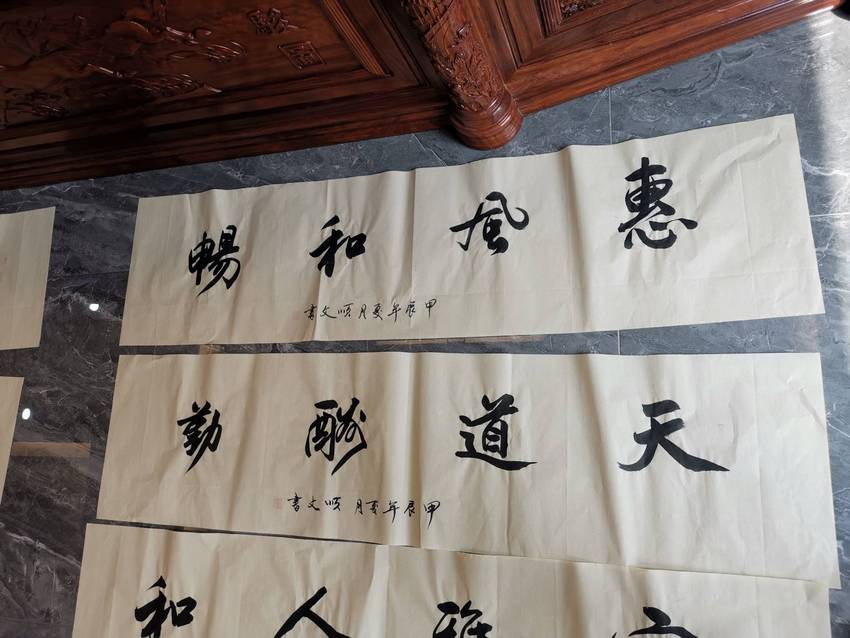 惠風和暢
甲辰年夏月順文書
天道酬勤
甲辰年夏月順文書
雅人和